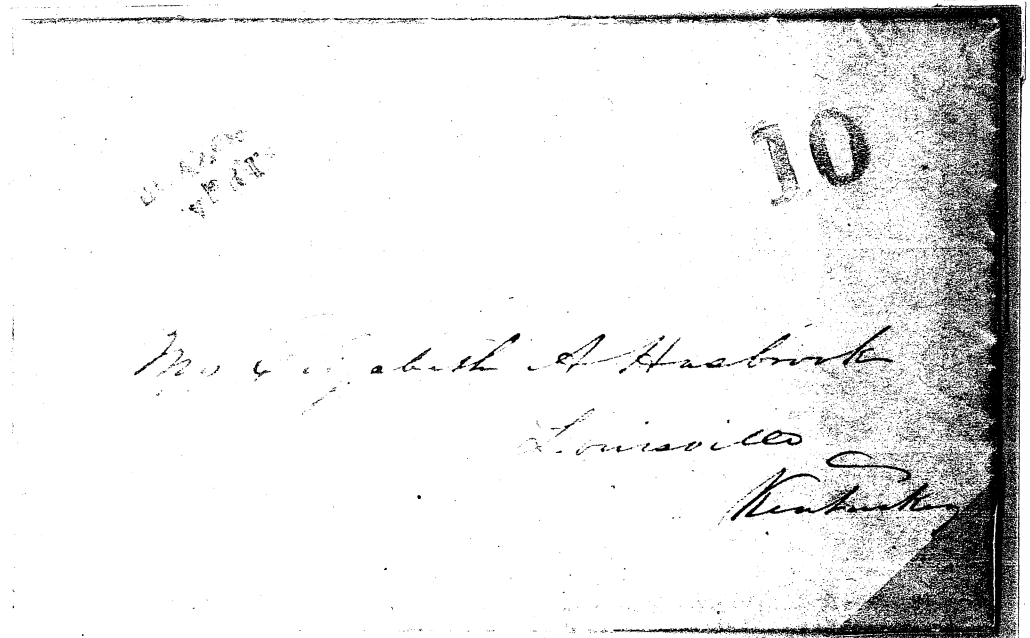 10
Mrs Elizabeth A Hasbrook
Louisville
Kentucky